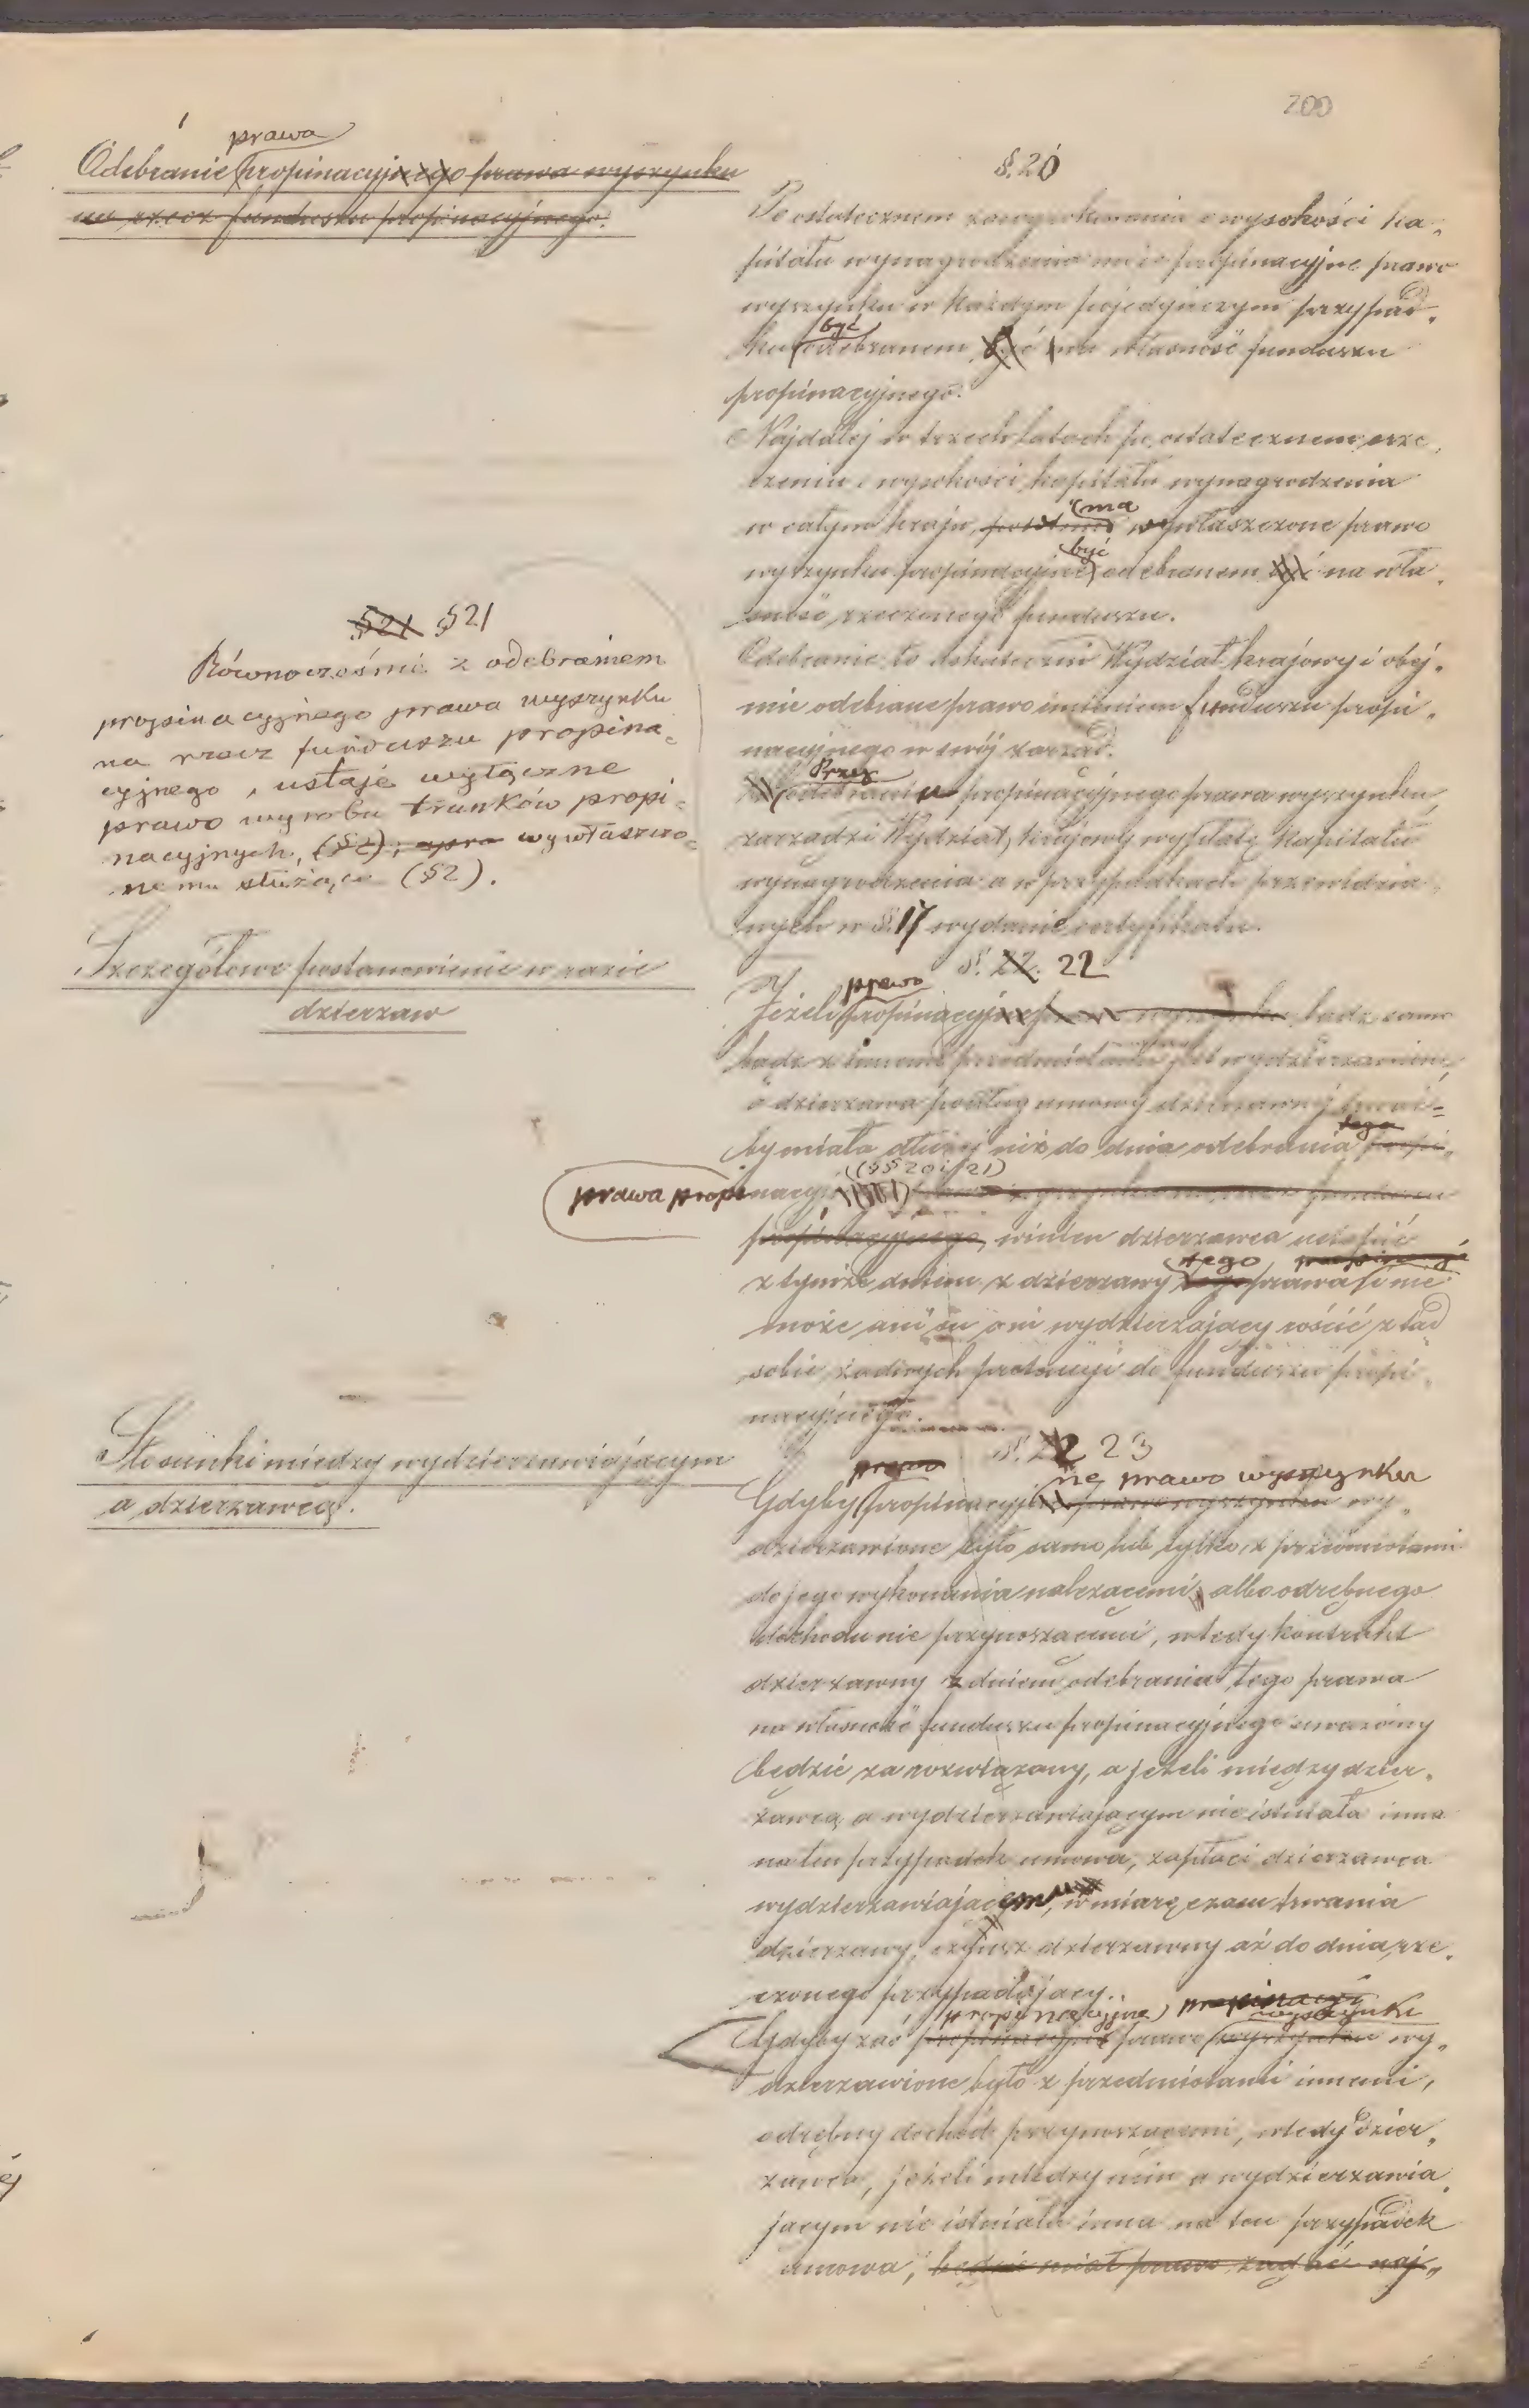 200
prawa
Odebranie propinacyjnego prawa wyszynku
na rzecz funduszu propinacyjnego.
§. 20
Po ostatecznem zawyrokowaniu o wysokości ka„
pitału wynagrodzenia może propinacyjne prawo
wyszynku w każdym pojedynczym przypad„
być
ku odebranem być na własność funduszu
propinacyjnego.
Najdalej w trzech latach po ostatecznem orze„
czeniu o wysokości kapitału wynagrodzenia
ma
w całym kraju wywłaszczone prawo
być
wyszynku propinacyjne odebranem być na wła„
sność rzeczonego funduszu.
Odebranie to uskuteczni Wydział krajowy i obej„
mie odebrane prawo imieniem funduszu propi„
nacyjnego w swój zarząd.
Przy
odebraniu propinacyjnego prawa wyszynku,
zarządzi Wydział krajowy wypłatę kapitału
wynagrodzenia a w przypadkach przewidzia„
nych w §. 17 wydanie certyfikatu.
§21 §21
Równocześnie z odebraniem
propinacyjnego prawa wyszynku
na rzecz funduszu propina„
cyjnego, ustaje wyłączne
prawo wyrobu trunków propi„
nacyjnych, (§2), wywłaszczo„
nemu służące (§2).
Szczegółowe postanowienie w razie
dzierzaw
§. 22. 22
prawo
Jeżeli propinacyjne prawo wyszynku bądź samo
bądź z innemi przedmiotami jest wydzierzawione,
a dzierzawa podług umowy dzierzawnej trwać„
tego
by miała dłużej niż do dnia odebrania propi„
(§§ 20 i 21)
prawa propinacyi
propinacyjnego, winien dzierzawca ustąpić
tego propinacyi
z tymże dniem z dzierzawy tego prawa i nie
może ani on ani wydzierzający rościć ztąd
sobie żadnych pretensyi do funduszu propi„
nacyjnego.
Stosunki między wydzierzawiającym
a dzierzawcą.
§. 22 23
prawo ne prawo wyszynku
Gdyby propinacyjne prawo wyszynku wy„
dzierzawione było samo lub tylko z przedmiotami
do jego wykonania należącemi, albo odrębnego
dochodu nie przynoszącemi, wtedy kontrakt
dzierzawny z dniem odebrania tego prawa
na własność funduszu propinacyjnego uważany
będzie za rozwiązany, a jeżeli między dzier„
zawcą a wydzierzawiającym nie istniała inna
na ten przypadek umowa, zapłaci dzierzawca
wydzierzawiającemu, w miarę czasu trwania
dzierzawy, czynsz dzierzawny aż do dnia rze„
czonego przypadający.
propinacyjne propinacyi wyszynku
Gdyby zaś propinacyjne prawo wyszynku wy„
dzierzawione było z przedmiotami innemi,
odrębny dochód przynoszącemi, wtedy dzier„
zawca, jeżeli między nim a wydzierzawia„
jącym nie istniała inna na ten przypadek
umowa, będzie miał prawo żądać naj„